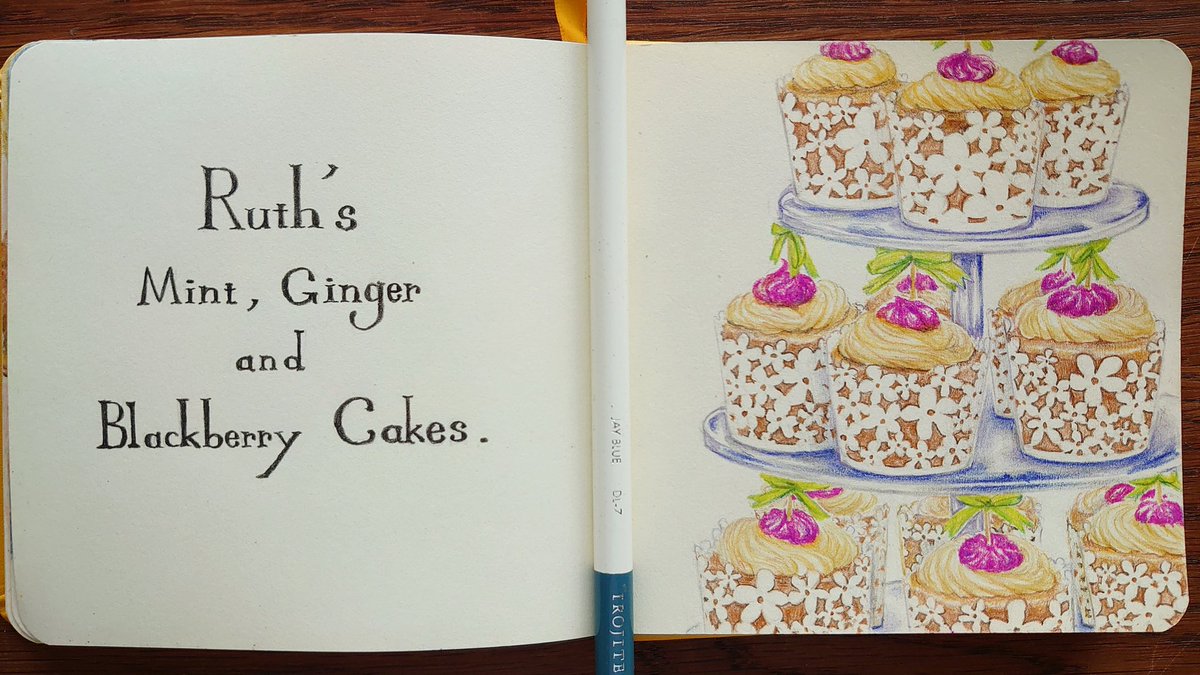 Ruth's
Mint, Ginger
and
Blackberry Cakes.
JAY BLUE DL-7
IROJITE